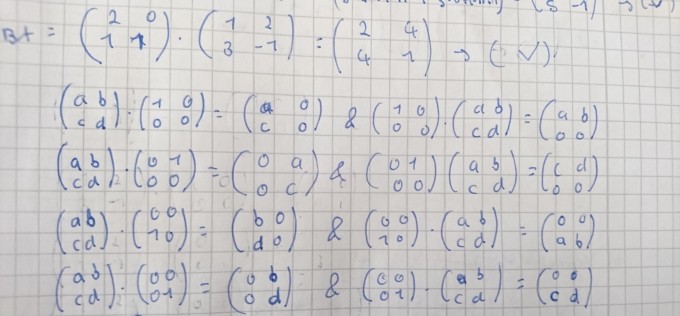 BA = (2 0; 1 1) · (1 2; 3 -1) = (2 4; 4 1) → (✓).
(a b; c d) · (1 0; 0 0) = (a 0; c 0) & (1 0; 0 0) · (a b; c d) = (a b; 0 0)
(a b; c d) · (0 1; 0 0) = (0 a; 0 c) & (0 1; 0 0) (a b; c d) = (c d; 0 0)
(a b; c d) · (0 0; 1 0) = (b 0; d 0) & (0 0; 1 0) · (a b; c d) = (0 0; a b)
(a b; c d) · (0 0; 0 1) = (0 b; 0 d) & (0 0; 0 1) · (a b; c d) = (0 0; c d)